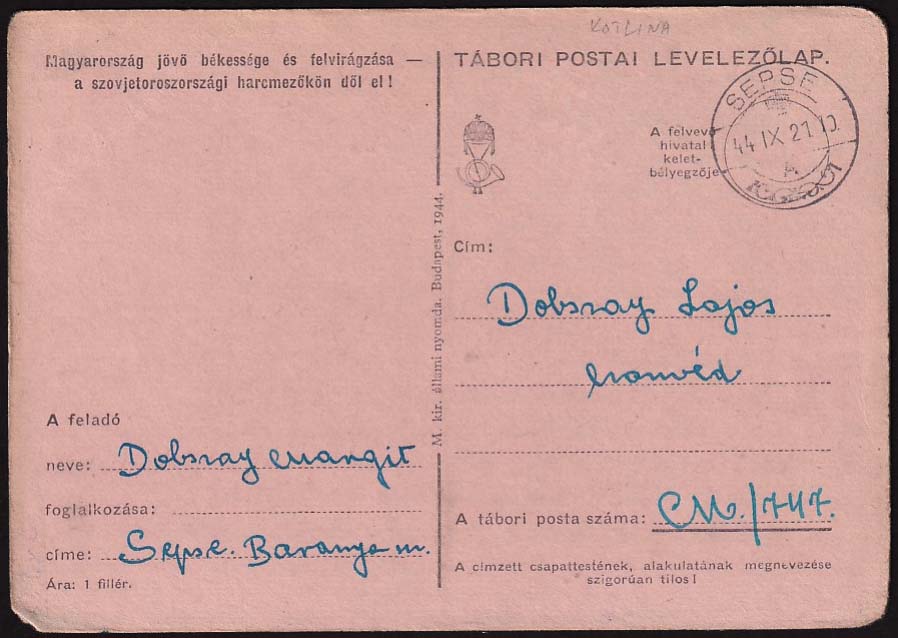 KOTLINA
Magyarország jövő békessége és felvirágzása —
a szovjetoroszországi harcmezőkön dől el!
TÁBORI POSTAI LEVELEZŐLAP.
A felvevő
hivatal
kelet-
bélyegzője
SEPSE
44 IX 21
A
Cím:
Dobszay Lajos
honvéd
M. kir. állami nyomda. Budapest, 1944.
A feladó
neve: Dobszay Margit
foglalkozása:
címe: Sepse. Baranya m.
Ára: 1 fillér.
A tábori posta száma: CM./747.
A címzett csapattestének, alakulatának megnevezése
szigorúan tilos!